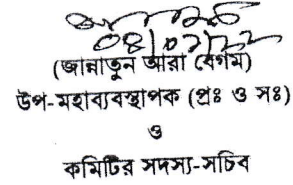 ০৪/০২/২২
(জান্নাতুন আরা বেগম)
উপ-মহাব্যবস্থাপক (প্রঃ ও সঃ)
ও
কমিটির সদস্য-সচিব